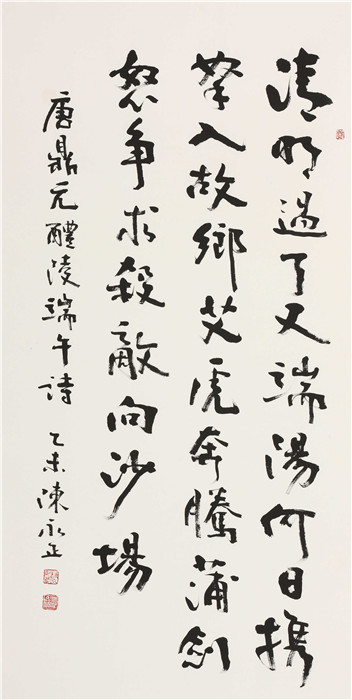 清明過了又端陽何日攜
拏入故鄉艾虎奔騰蒲劍
怒爭求殺敵向沙場
唐鼎元醴陵端午詩 乙未陳永正